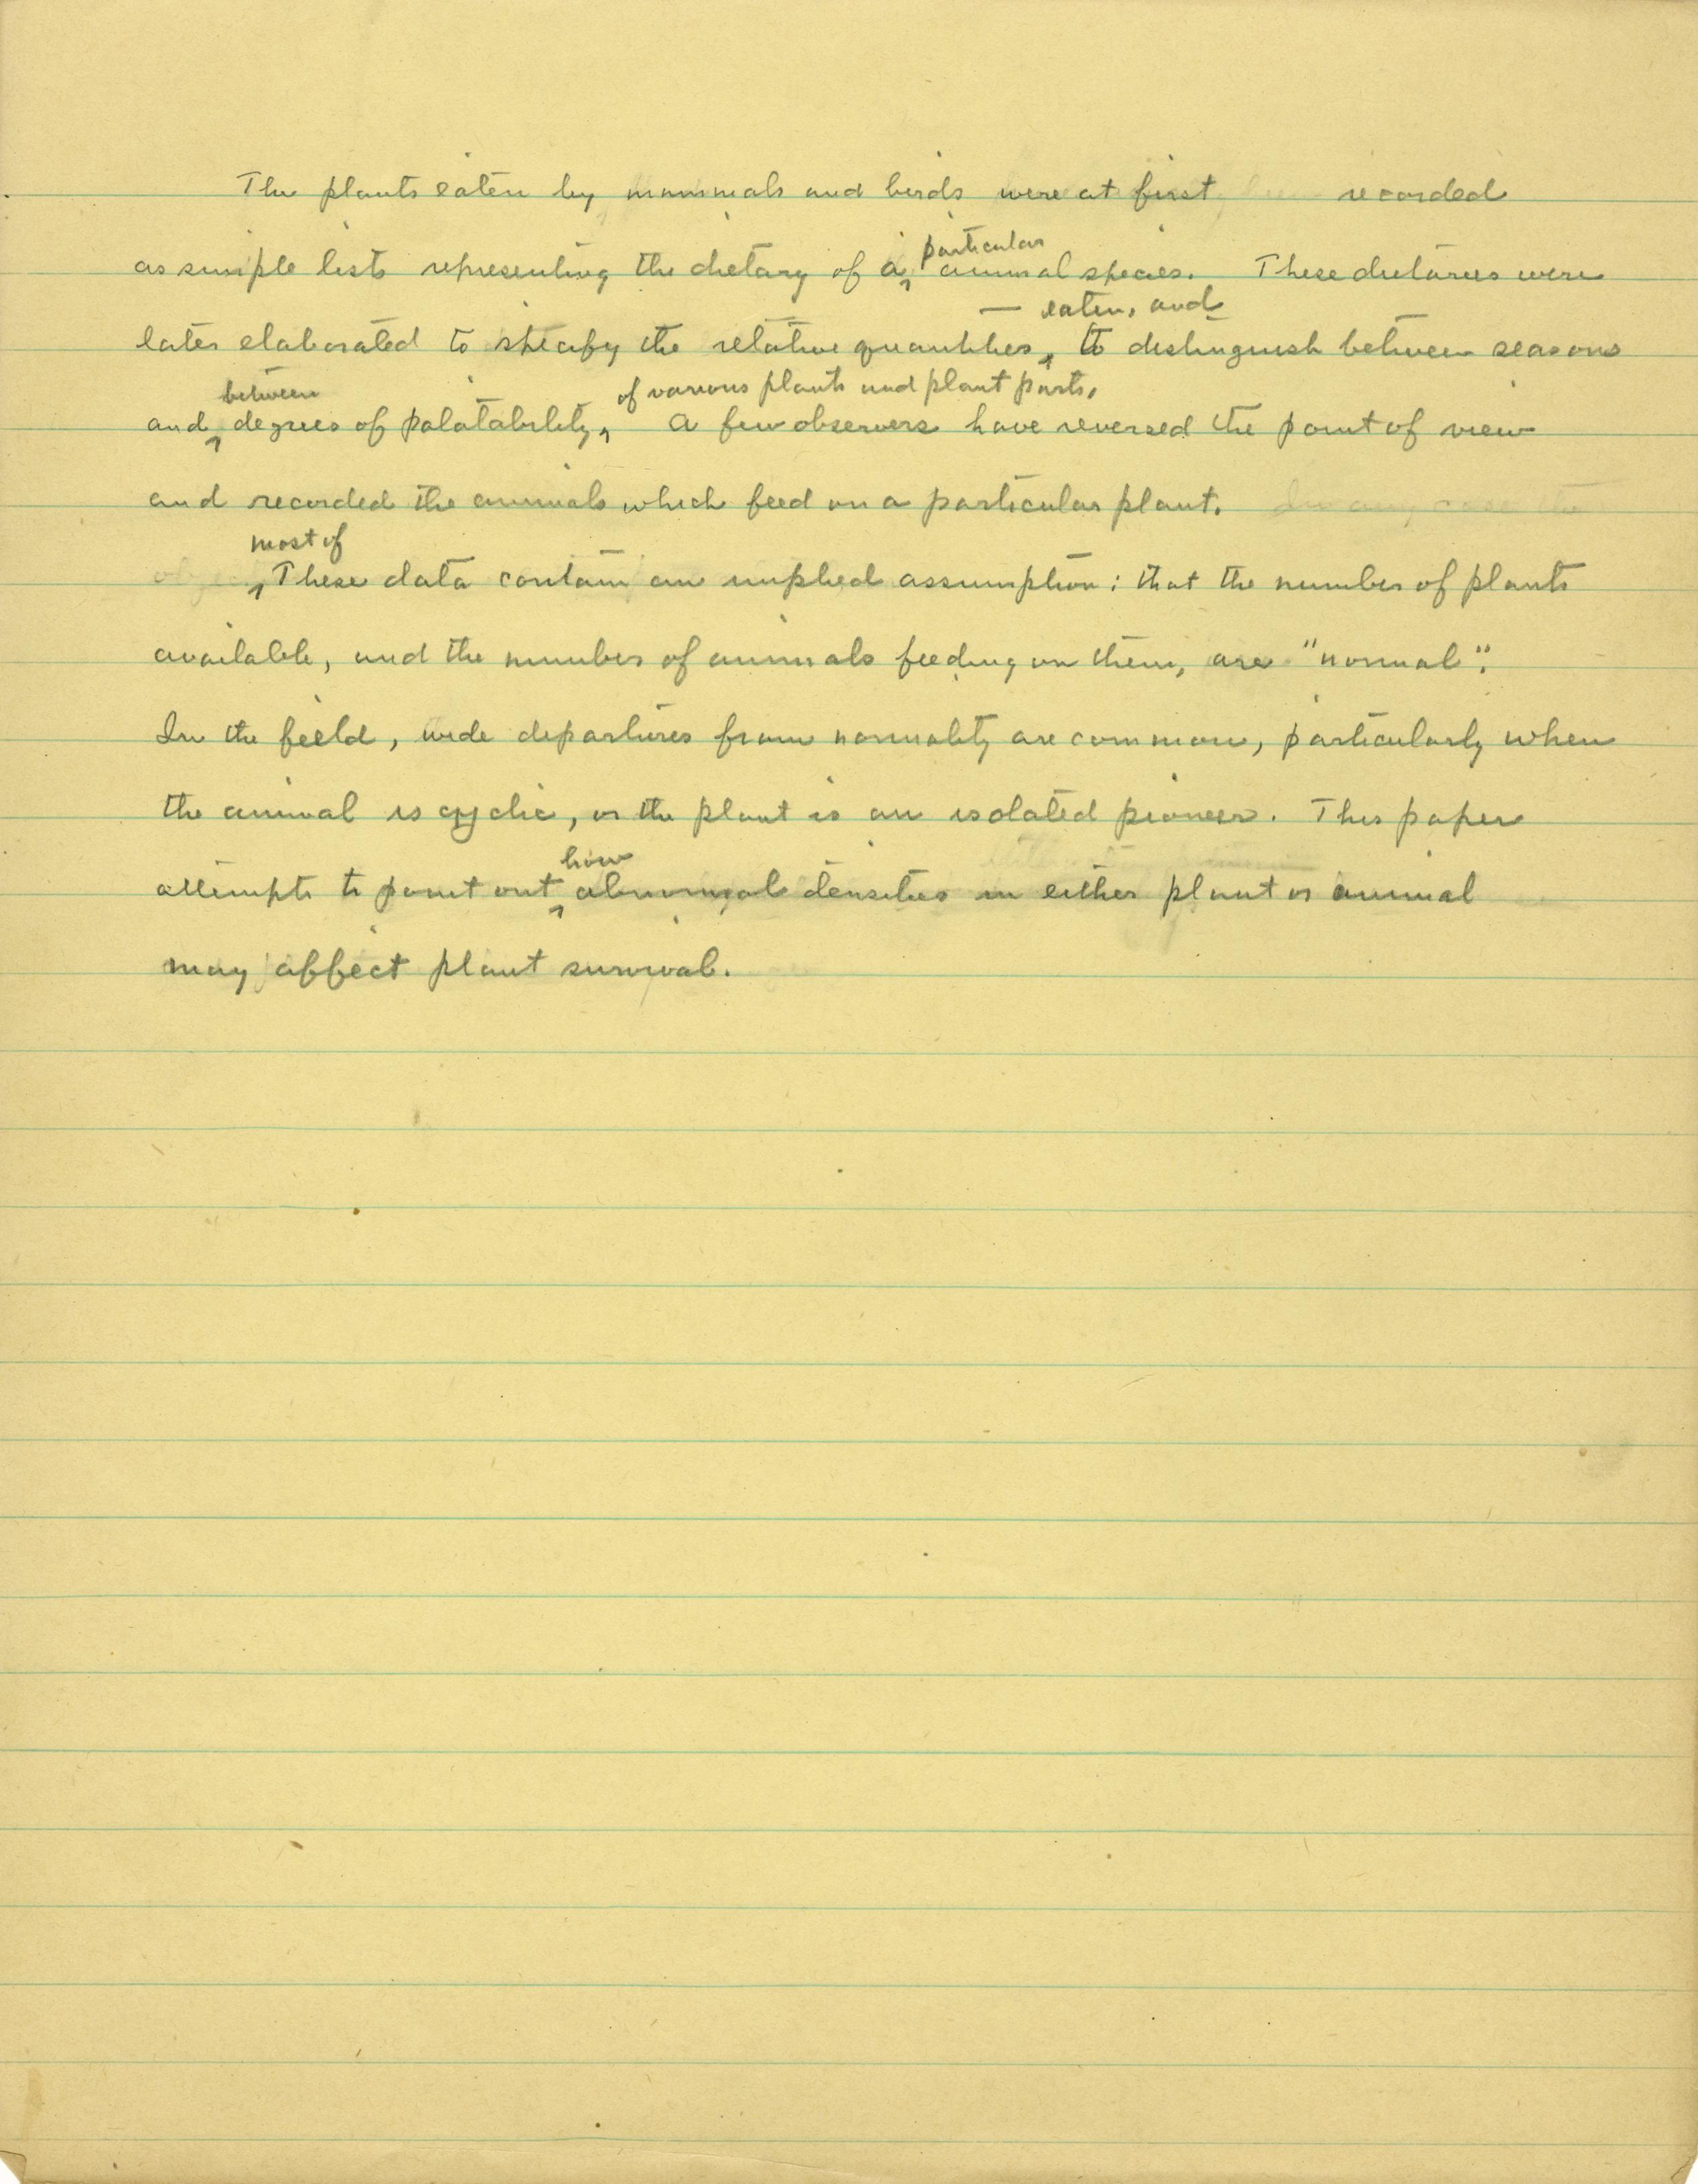 The plants eaten by mammals and birds were at first recorded
as simple lists representing the dietary of a particular animal species. These dietaries were
later elaborated to specify the relative quantities eaten, and to distinguish between seasons
and between degrees of palatability, of various plants and plant parts. A few observers have reversed the point of view
and recorded the animals which feed on a particular plant.
most of These data contain an implied assumption: that the number of plants
available, and the number of animals feeding on them, are "normal".
In the field, wide departures from normality are common, particularly when
the animal is cyclic, or the plant is an isolated pioneer. This paper
attempts to point out how abnormal densities in either plant or animal
may affect plant survival.